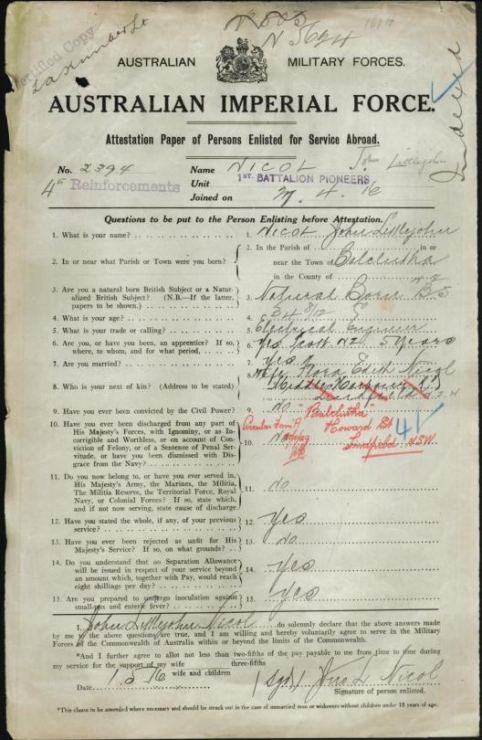 Certified Copy
N 5694
AUSTRALIAN MILITARY FORCES.
AUSTRALIAN IMPERIAL FORCE.
Attestation Paper of Persons Enlisted for Service Abroad.
No. 2394 Name NICOL John Littlejohn
4th Reinforcements Unit 1ST. BATTALION PIONEERS
Joined on 27. 4. 16
Questions to be put to the Person Enlisting before Attestation.
1. What is your name? 1. NICOL John Littlejohn
2. In or near what Parish or Town were you born? 2. In the Parish of in or
near the Town of Balclutha
in the County of
3. Are you a natural born British Subject or a Natu-
ralized British Subject? (N.B.—If the latter,
papers to be shown.) 3. Natural Born B S
4. What is your age? 4. 34
5. What is your trade or calling? 5. Electrical Engineer
6. Are you, or have you been, an apprentice? If so,
where, to whom, and for what period, 6. Yes Scott NZ 5 years
7. Are you married? 7. Yes
8. Who is your next of kin? (Address to be stated) 8. Wife Flora Edith Nicol
Middle Harbour Rd
Lindfield
Balclutha
Howard Rd
Lindfield. NSW.
9. Have you ever been convicted by the Civil Power? 9. No
10. Have you ever been discharged from any part of
His Majesty's Forces, with Ignominy, or as In-
corrigible and Worthless, or on account of Con-
viction of Felony, or of a Sentence of Penal Ser-
vitude, or have you been dismissed with Dis-
grace from the Navy? 10. No
11. Do you now belong to, or have you ever served in,
His Majesty's Army, the Marines, the Militia,
The Militia Reserve, the Territorial Force, Royal
Navy, or Colonial Forces? If so, state which,
and if not now serving, state cause of discharge 11. No
12. Have you stated the whole, if any, of your previous
service? 12. Yes
13. Have you ever been rejected as unfit for His
Majesty's Service? If so, on what grounds? 13. No
14. Do you understand that no Separation Allowance
will be issued in respect of your service beyond
an amount which, together with Pay, would reach
eight shillings per day? 14. Yes
15. Are you prepared to undergo inoculation against
small-pox and enteric fever? 15. Yes
I, John Littlejohn Nicol do solemnly declare that the above answers made
by me to the above questions are true, and I am willing and hereby voluntarily agree to serve in the Military
Forces of the Commonwealth of Australia within or beyond the limits of the Commonwealth.
*And I further agree to allot not less than two-fifths of the pay payable to me from time to time during
three-fifths
my service for the support of my wife
wife and children
Date 1. 5 16 (Sgd) Jno L Nicol
Signature of person enlisted.
*This clause to be amended where necessary and should be struck out in the case of unmarried men or widowers without children under 18 years of age.